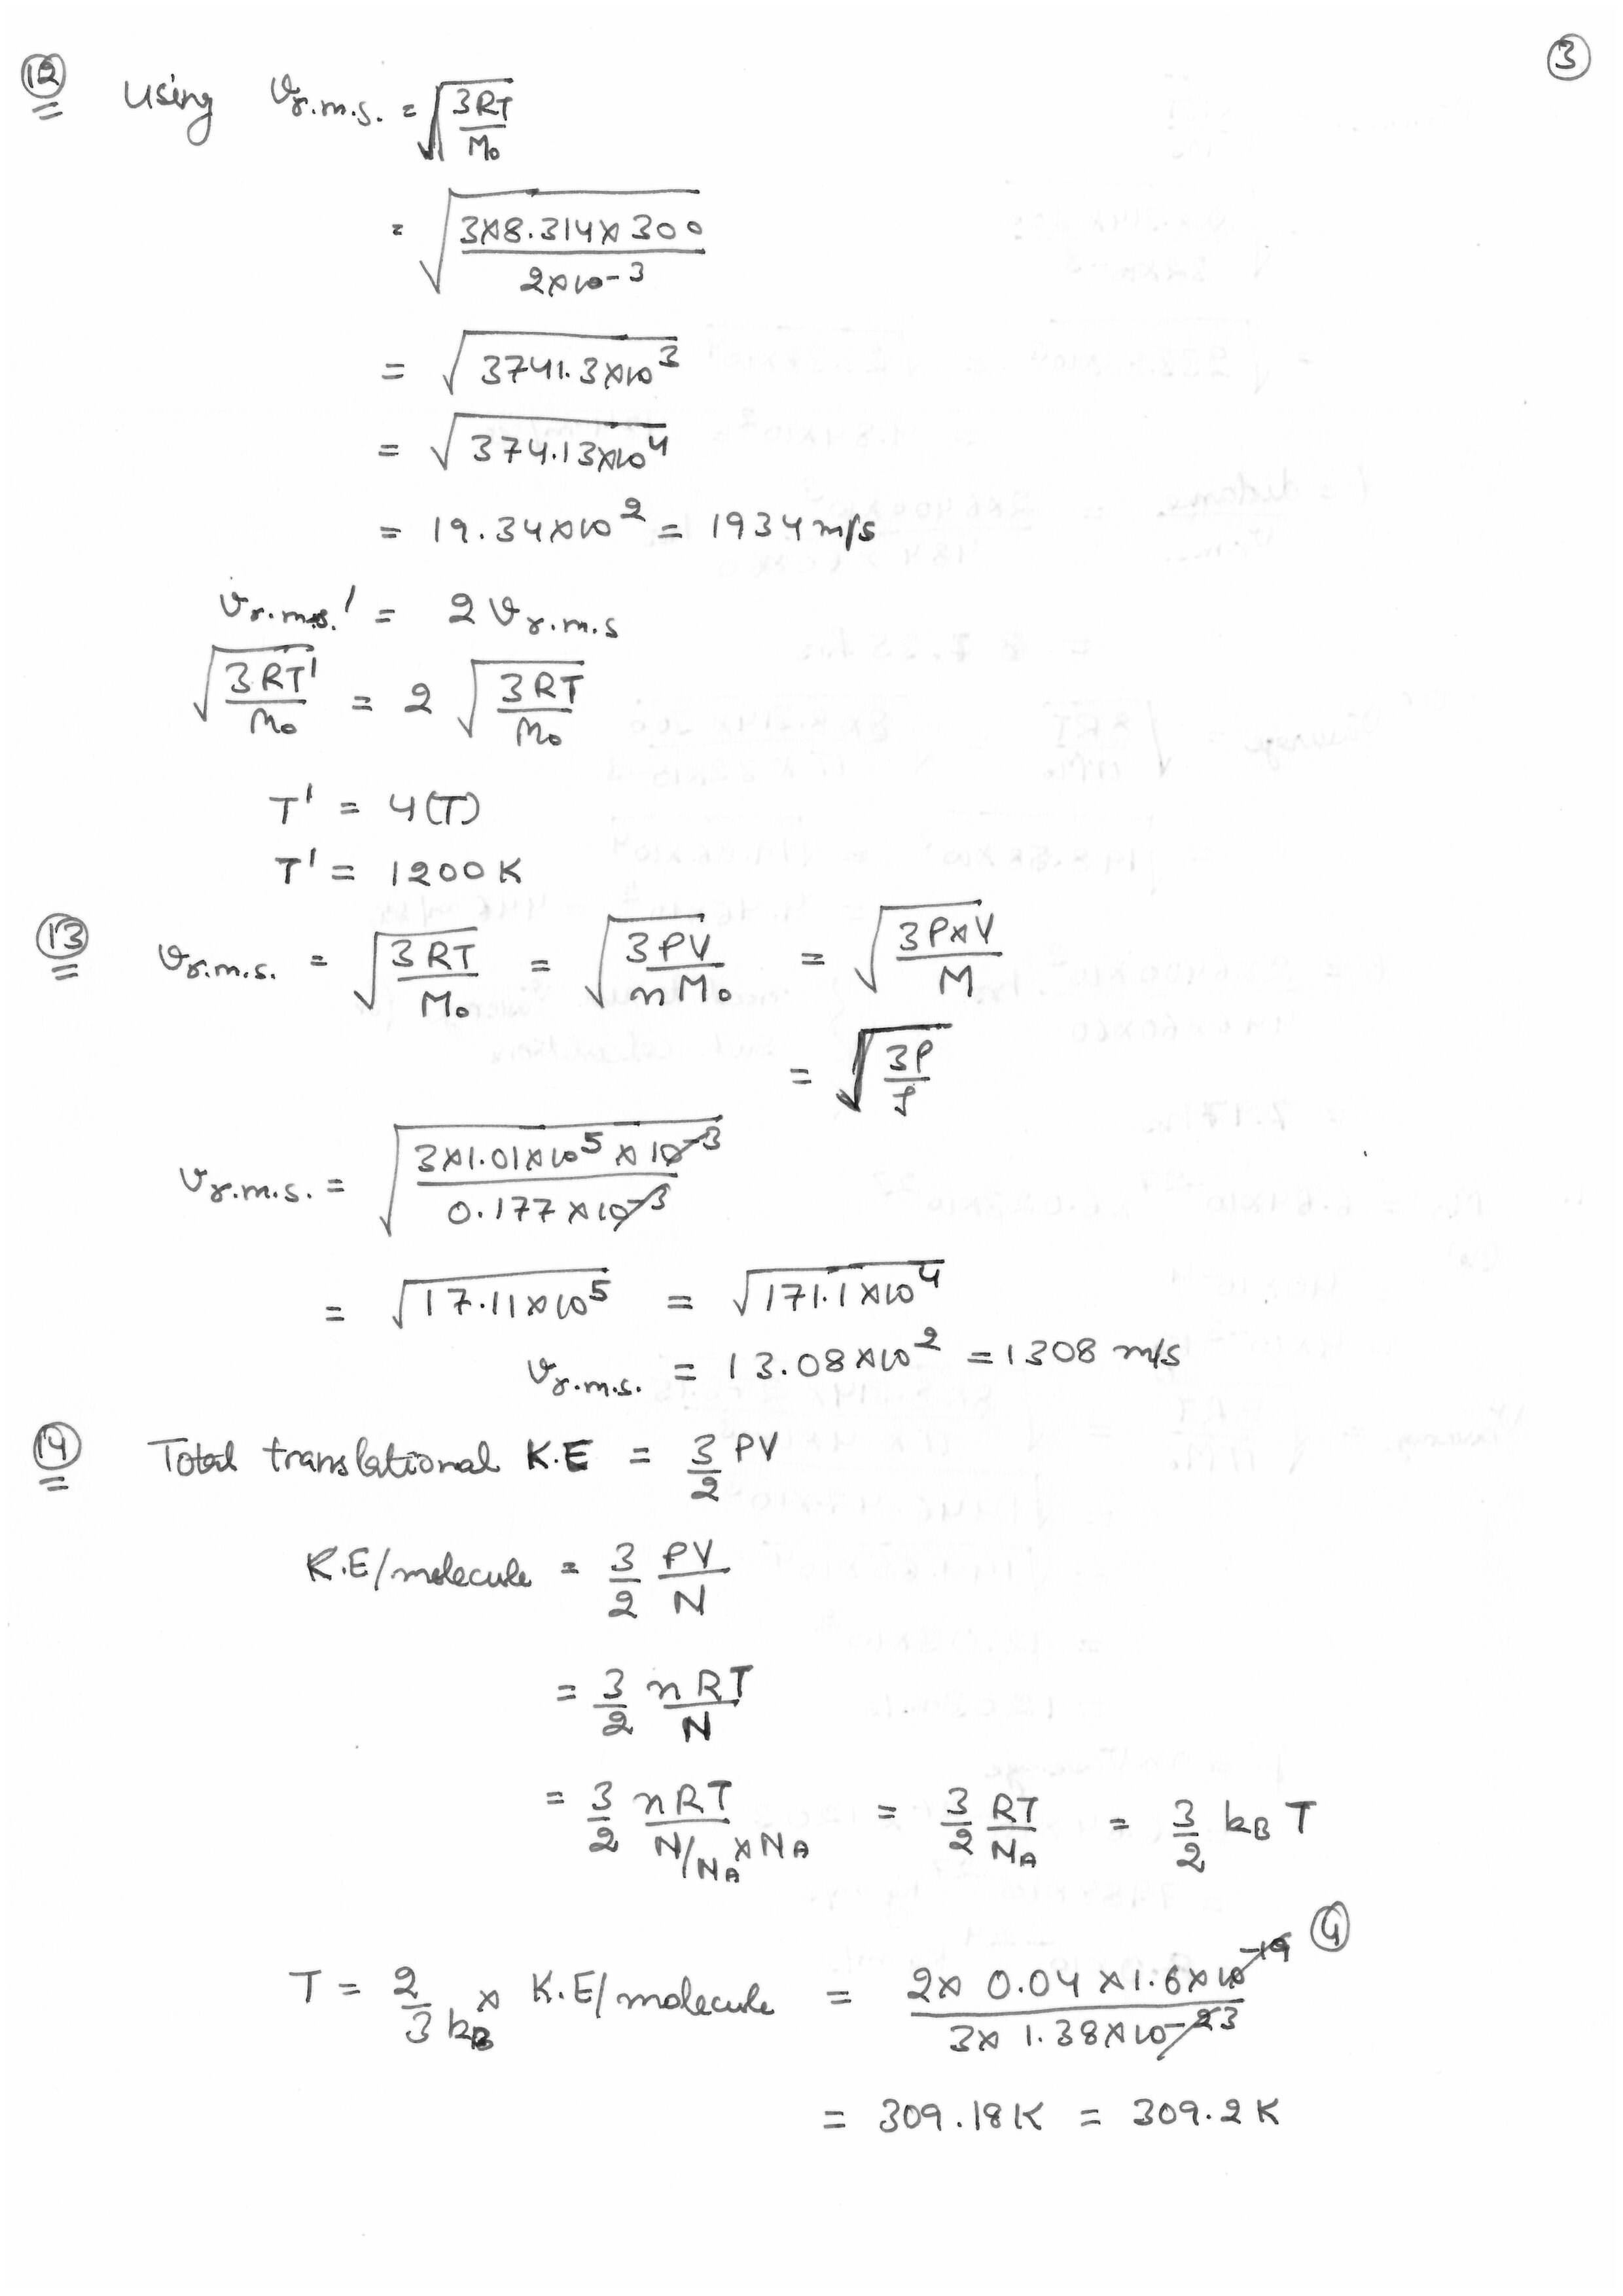 3
12 Using v r.m.s. = √(3RT/M₀)
= √(3×8.314×300 / 2×10⁻³)
= √(3741.3×10³)
= √(374.13×10⁴)
= 19.34×10² = 1934 m/s
v r.m.s.' = 2 v r.m.s
√(3RT'/M₀) = 2 √(3RT/M₀)
T' = 4(T)
T' = 1200 K
13 v r.m.s. = √(3RT/M₀) = √(3PV/nM₀) = √(3P×V/M)
= √(3P/ρ)
v r.m.s. = √(3×1.01×10⁵×10⁻³ / 0.177×10⁻³)
= √(17.11×10⁵) = √(171.1×10⁴)
v r.m.s. = 13.08×10² = 1308 m/s
14 Total translational K.E = 3/2 PV
K.E/molecule = 3/2 PV/N
= 3/2 nRT/N
= 3/2 nRT/(N/N_A × N_A) = 3/2 RT/N_A = 3/2 k_B T
T = 2/(3 k_B) × K.E/molecule = (2× 0.04 ×1.6×10⁻¹⁹) / (3× 1.38×10⁻²³) 4
= 309.18K = 309.2 K